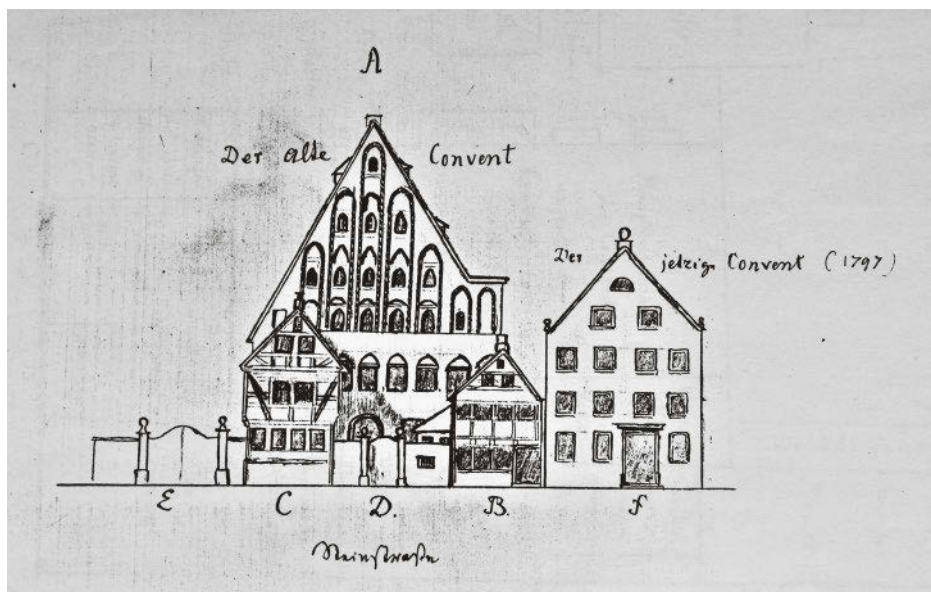 A
Der alte Convent
Der jetzige Convent (1797)
E C D. B. F
Steinstraße